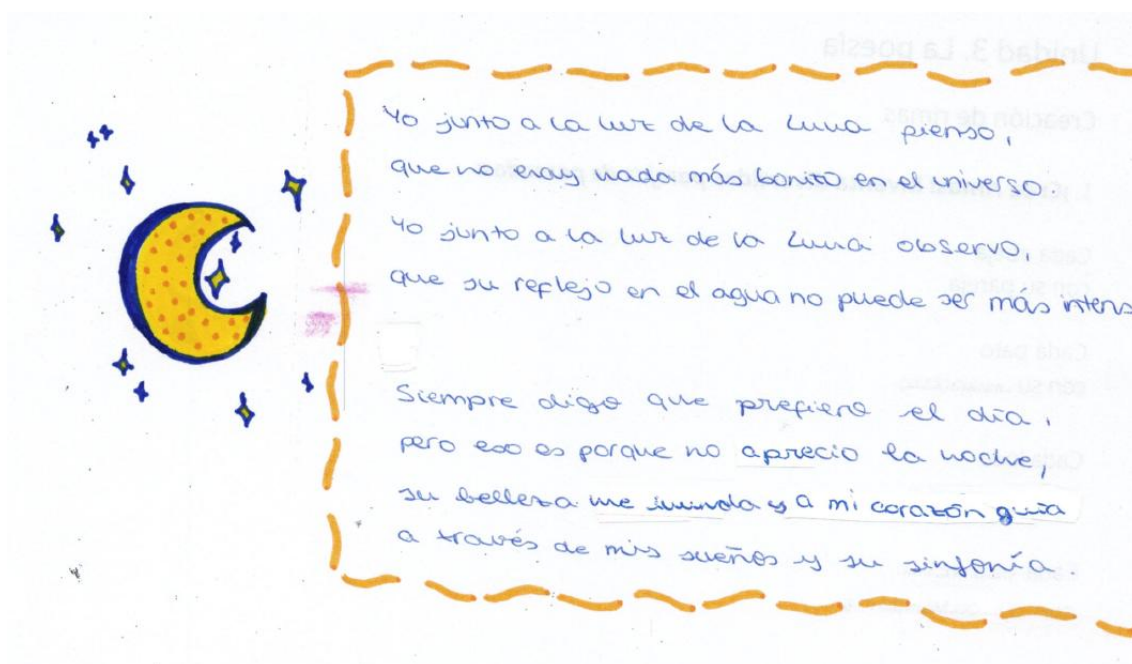 Yo junto a la luz de la Luna pienso,
que no nada más bonito en el universo
Yo junto a la luz de la Luna observo,
que su reflejo en el agua no puede ser más intens
Siempre digo que prefiero el día,
pero eso es porque no aprecio la noche,
su belleza me inunda y a mi corazón guía
a través de mis sueños y su sinfonía.